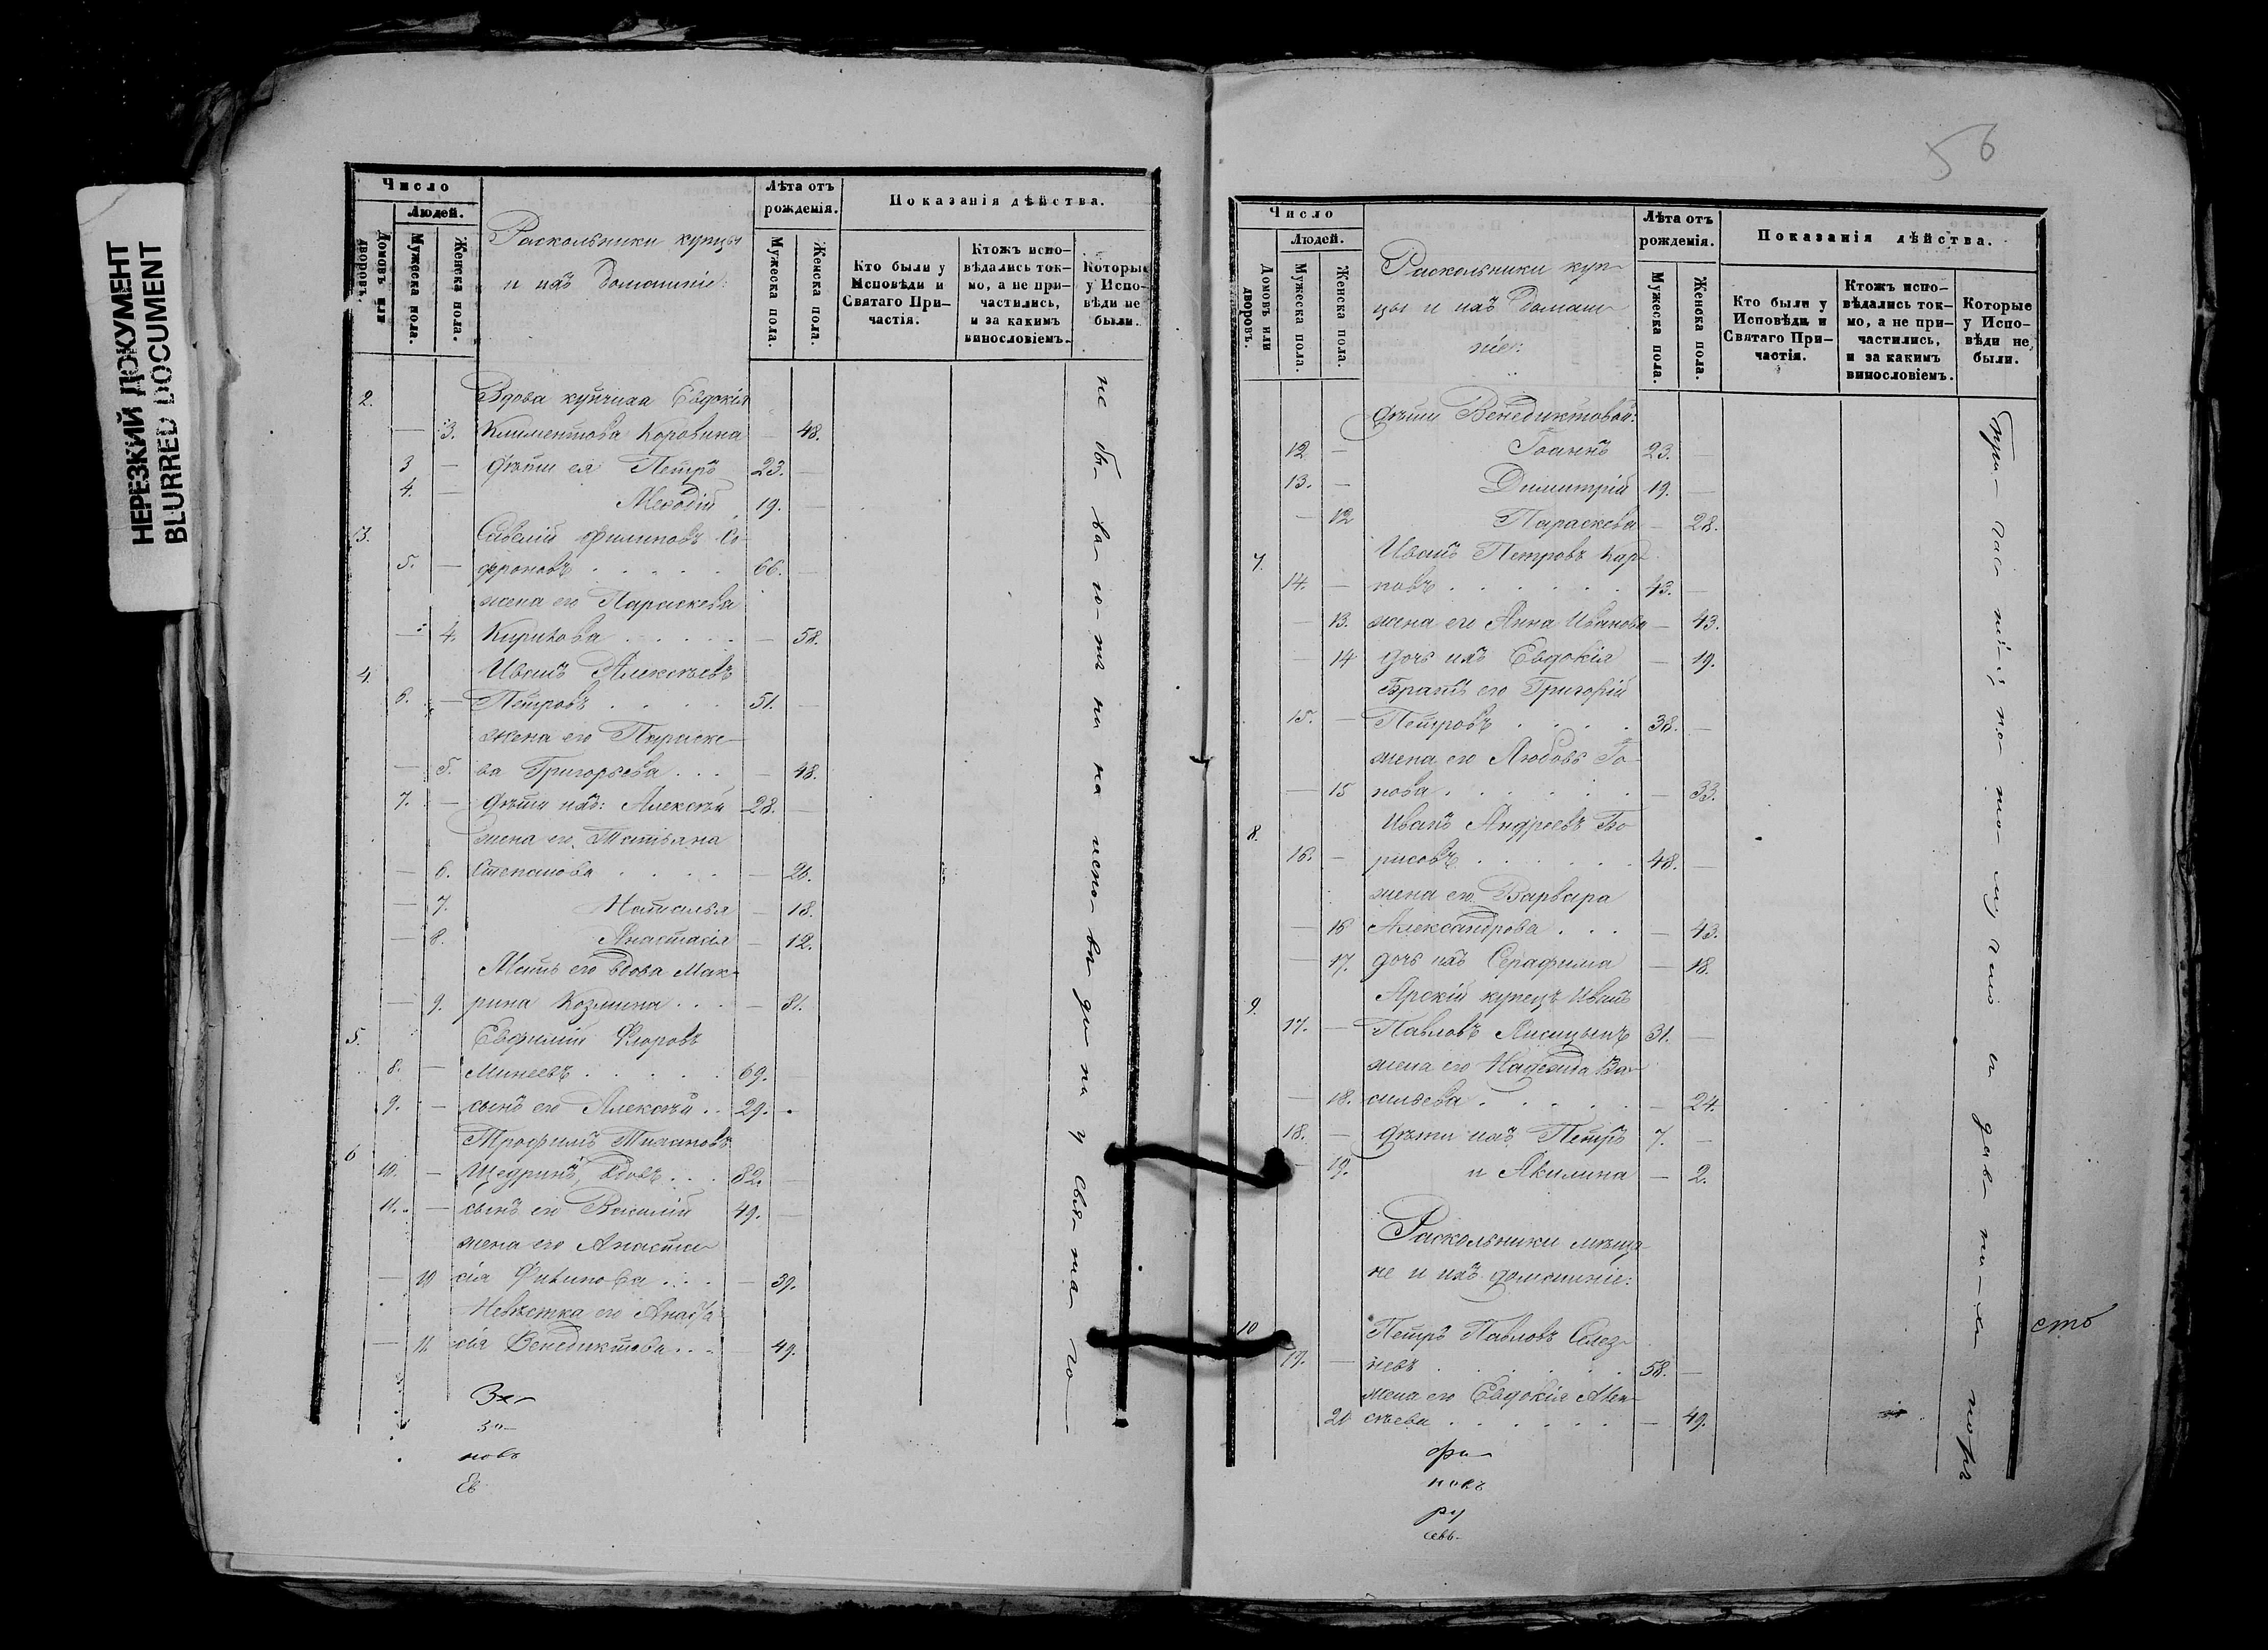 НЕРЕЗКИЙ ДОКУМЕНТ
BLURRED DOCUMENT
Число
Людей.
Домовъ или дворовъ.
Мужеска пола.
Женска пола.
Раскольники купцы
и ихъ домашніе:
Лѣта отъ рожденія.
Мужеска пола.
Женска пола.
Показанія дѣйства.
Кто были у Исповѣди и Святаго Причастія.
Ктожъ исповѣдались токмо, а не причастились, и за какимъ винословіемъ.
Которые у Исповѣди не были.
2. Вдова купчиха Евдокія
— 3. Климентова Коровина — 48.
3 — дѣти ея Петръ 23. —
4. — Меѳодій 19. —
3. Савелій Филиповъ Со-
5. — фроновъ . . . . . 66. —
жена его Параскева
— 4. Кирилова . . . . . — 58.
4. Иванъ Алексѣевъ
6. — Петровъ . . . . 51. —
жена его Параске-
— 5. ва Григорьева . . . — 48.
7. — дѣти ихъ: Алексѣй 28. —
жена его Татьяна
— 6. Степанова . . . . — 26.
— 7. Наталья — 18.
— 8. Анастасія — 12.
Мать его вдова Мак-
— 9. рина Козмина . . . — 81.
5. Евфимій Флоровъ
8. — Минеевъ . . . . . 69. —
9. — сынъ его Алексѣй . . 29. —
6 Трофимъ
10. — Щедринъ, вдовъ . . . 82. —
11. — сынъ его Василій 49. —
жена его Анаста-
— 10 сія Филипова . . . — 39.
Невѣстка его Анаста-
— 11. сія Венедиктова . . . — 49.
не бы- ва- ю- тъ ни на испо- вѣ- ди ни у Свя- та- го
новъ
Ев
56
Число
Людей.
Домовъ или дворовъ.
Мужеска пола.
Женска пола.
Раскольники куп-
цы и ихъ домаш-
ніе:
Лѣта отъ рожденія.
Мужеска пола.
Женска пола.
Показанія дѣйства.
Кто были у Исповѣди и Святаго Причастія.
Ктожъ исповѣдались токмо, а не причастились, и за какимъ винословіемъ.
Которые у Исповѣди не были.
дѣти Венедиктовой:
12 — Іоаннъ 23. —
13. — Димитрій 19. —
— 12 Параскева — 28.
7. Иванъ Петровъ Кар-
14. — повъ . . . . . . 43. —
— 13. жена его Анна Иванова — 43.
— 14 дочь ихъ Евдокія — 19.
Братъ его Григорій
15. — Петровъ . . . . 38. —
жена его Любовь Іо-
— 15 нова . . . . . . — 33.
8. Иванъ Андреевъ Бо-
16. — рисовъ . . . . . . 48. —
жена его Варвара
— 16 Александрова . . . — 43.
— 17. дочь ихъ Серафима — 18.
9. Арскій купецъ Иванъ
17. — Павловъ Лисицынъ 31. —
жена его Надежда Ва-
— 18. сильева . . . . . — 24.
18. — дѣти ихъ Петръ 7. —
— 19. и Акилина — 2.
Раскольники мѣща-
не и ихъ домашніе:
10 Петръ Павловъ Селез-
17. — невъ . . . . . . 58. —
жена его Евдокія Алек-
20 сѣева . . . . . . — 49.
При- час- ті- я; по- то- му что и дав- ни- ха
сть
фи-
новъ
ру
севъ-